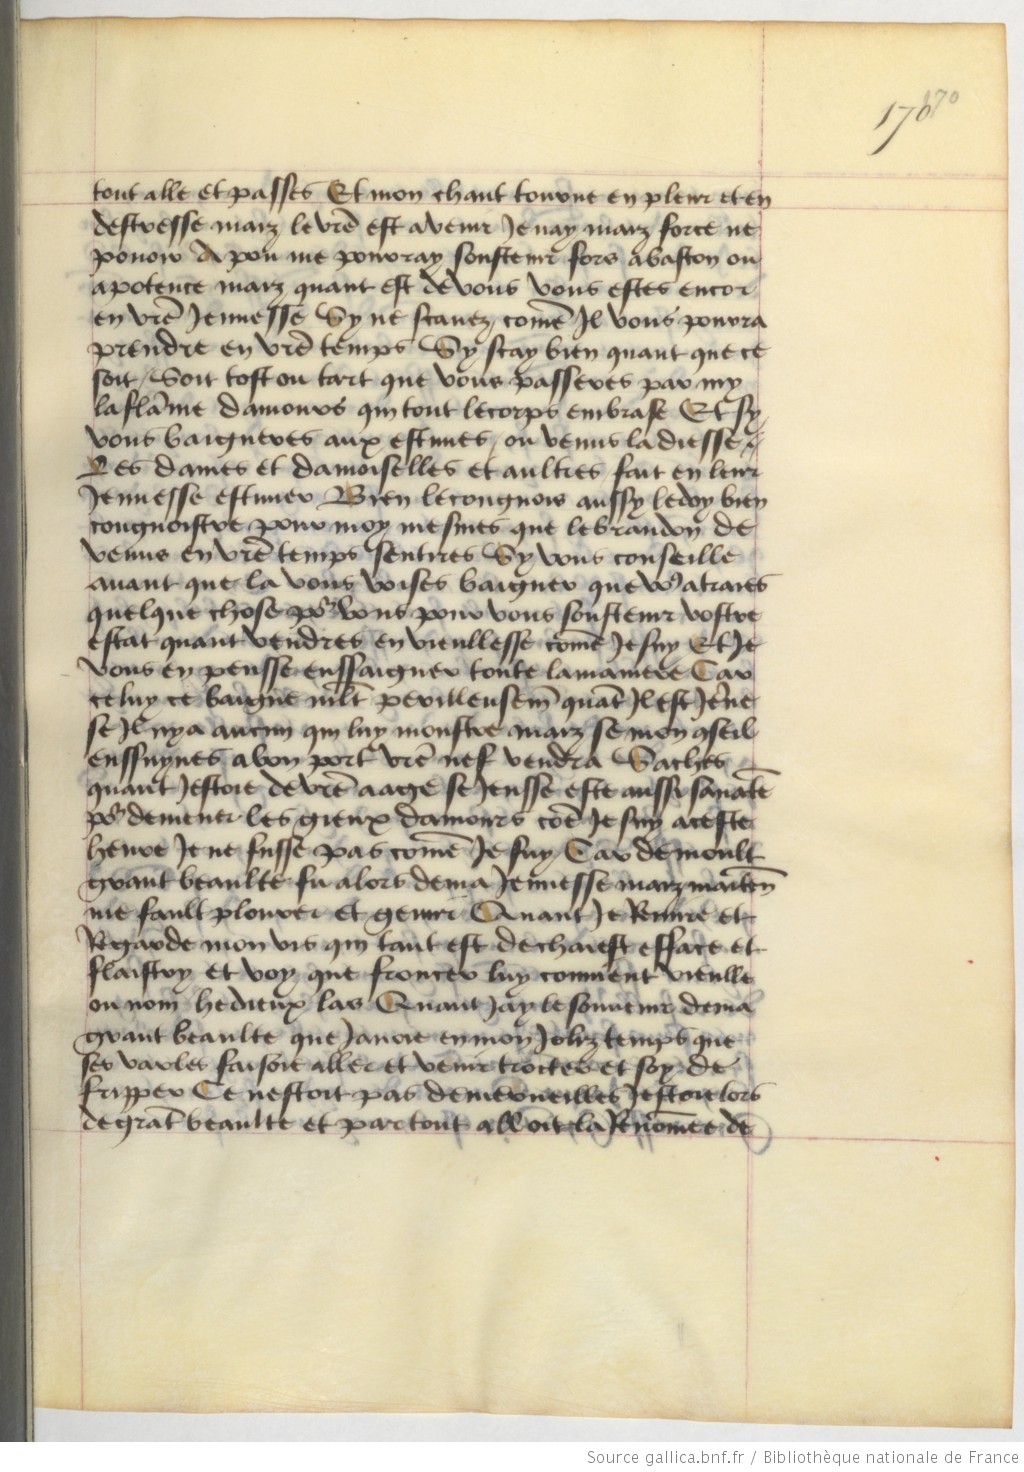 170 170
tout alle et passes Et mon chant tourne en pleur et en
destresse maiz le vrē est avenir Je nay maiz force ne
pouoir A pou me pourray soustenir fors a baston ou
a potence maiz quant est de vous vous estes encor
en vrē Jennesse Sy ne scauez comē Jl vous pourra
prendre en vrē temps Sy scay bien quant que ce
soit / Soit tost ou tart que vous passeres par my
la flāme damours qui tout le corps embrase Et sy
vous baigneres aux estuues / ou venus la diesse
Les dames et damoiselles et aultres fait en leur
Jennesse estuuer Bien le congnois aussy le doy bien
congnoistre pour moy mesmes que le brandon de
venus en vrē temps sentires Sy vous conseille
auant que la vous voises baigner que vo9 atraies
quelque chose por vous pour vous soustenir vostre
estat quant vendres en vieullesse comē Je suy Et Je
vous en pensse enssaigner toute la maniere Car
celuy ce baigne mlt perilleusem̄ quāt Jl est Jēne
se Jl ny a aucun qui luy monstre maiz se mon 9seil
enssuyues a bon port vrē nef vendra Saches
quant Jestoie de vrē aage se Jeusse este aussi sanātē
por demener les gieux damours cōe Je suy a ceste
heure Je ne fusse pas comē Je suy / Car de moult
grant beaulte fu alors de ma Jennesse maiz maītēn
me fault plourer et gemir Quant Je Remire et
Regarde mon vis qui tant est decheu est efface et
flaistry et voy que froncer luy conuient vieulle
ou nom hedieux las Quant Jay le souuenir de ma
grant beaulte que Jauoie en mon Joliz temps que
ses varles faisoie aller et venir trocter et soy de
fripper Ce nestoit pas de merueilles Jestoie lors
de grāt beaulte et par tout alloit la Renōmee de
Source gallica.bnf.fr / Bibliothèque nationale de France